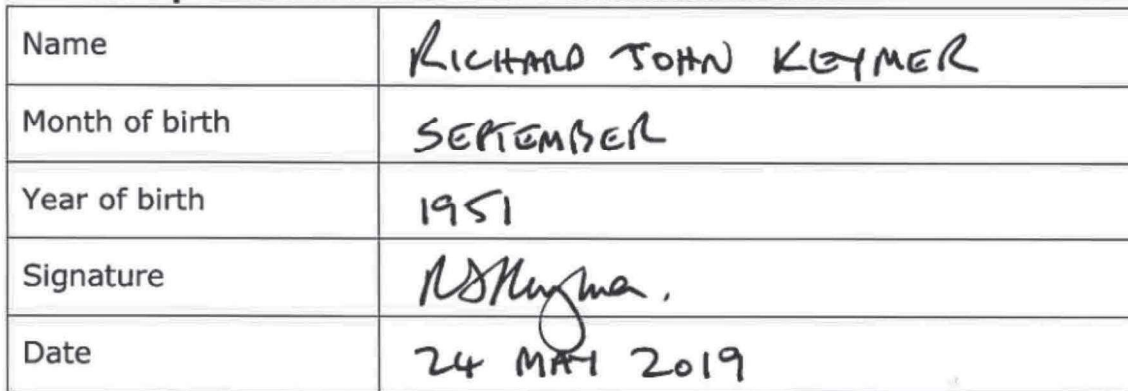 Name RICHARD JOHN KEYMER
Month of birth SEPTEMBER
Year of birth 1951
Signature RJKeymer.
Date 24 MAY 2019